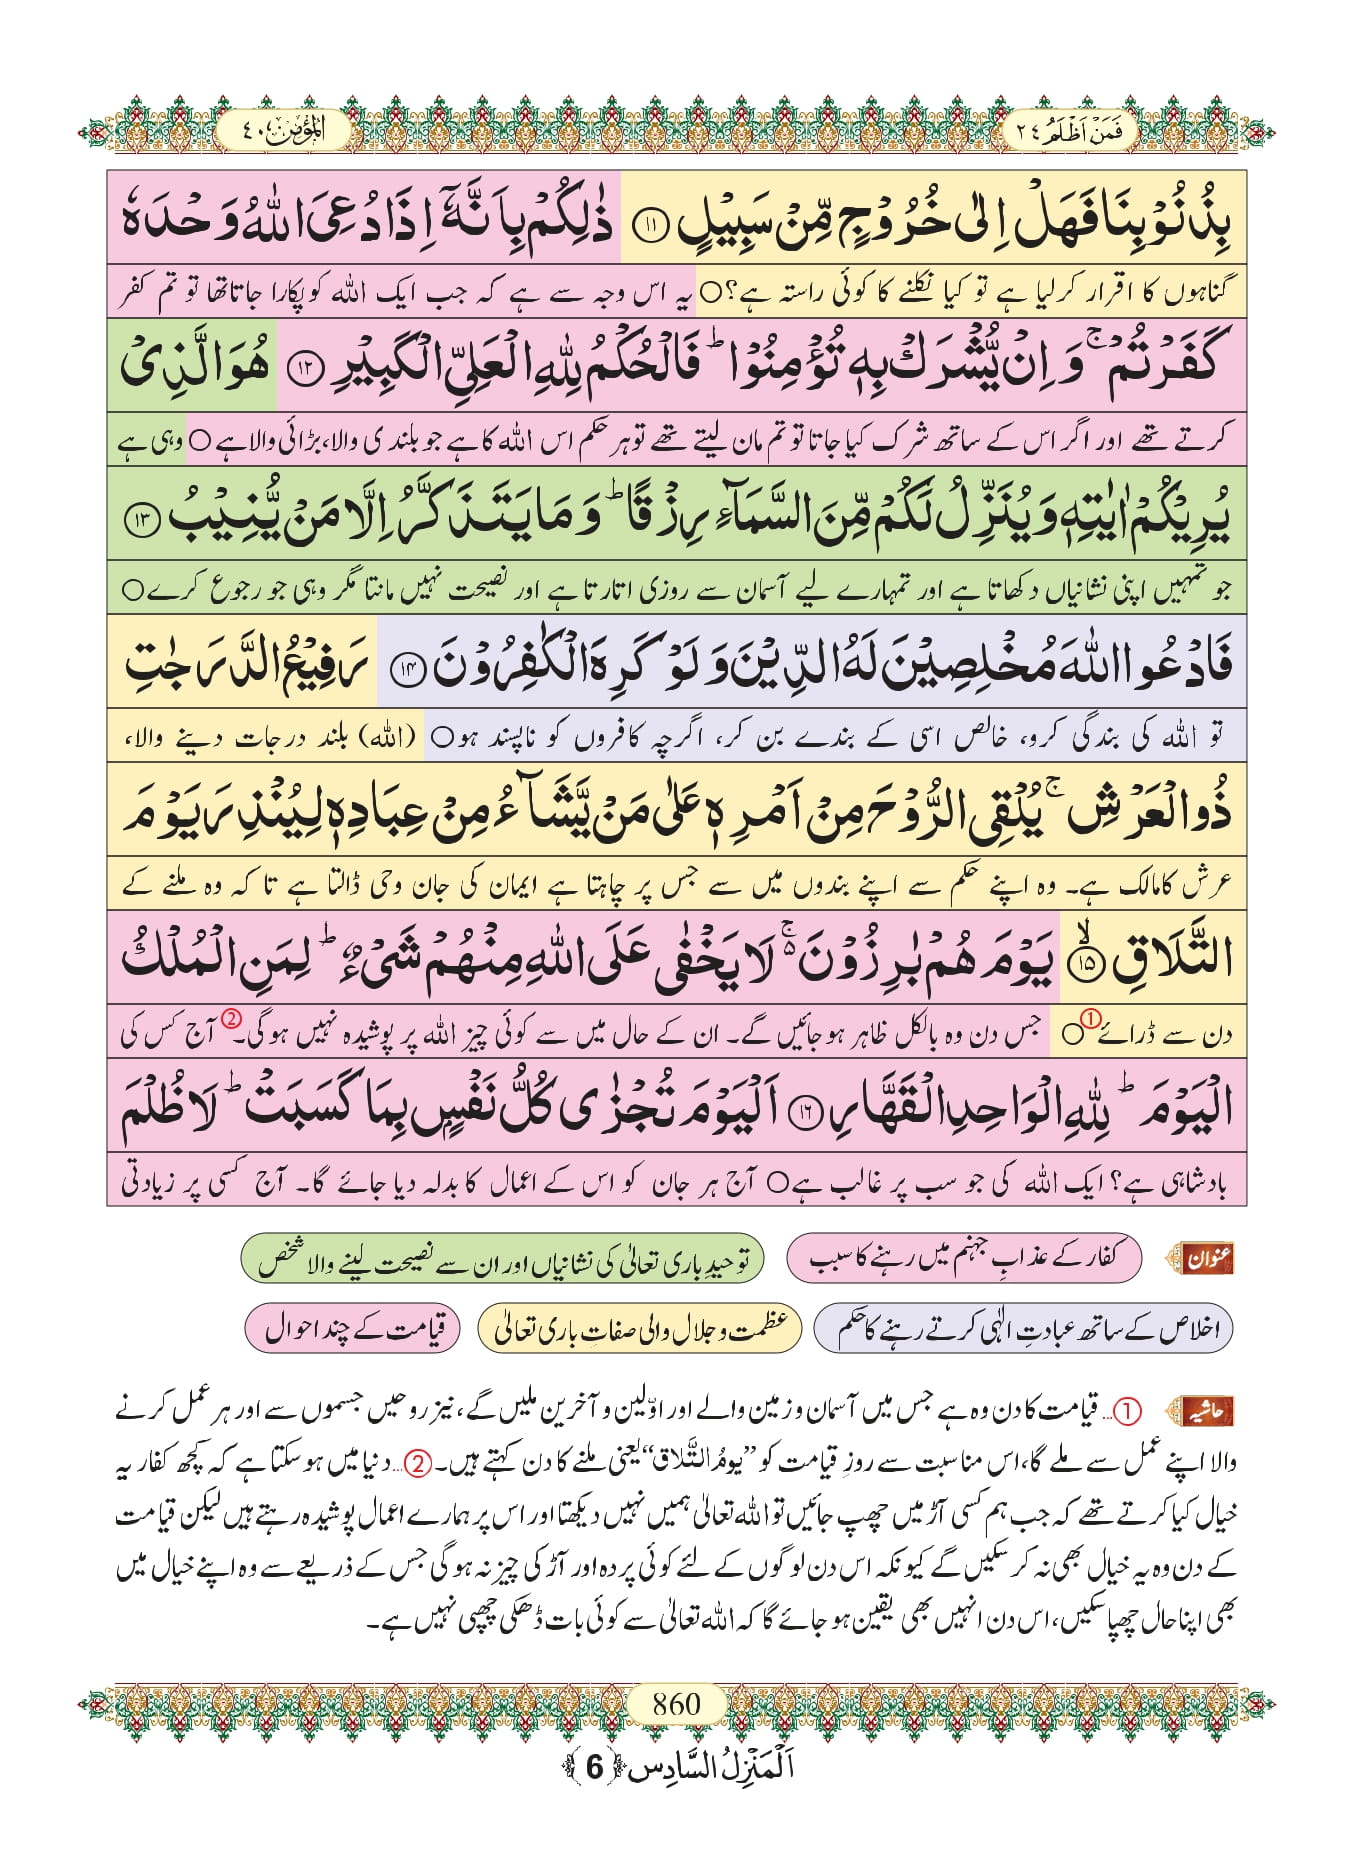 فَمَنْ اَظْلَمُ ٢٤
المؤمن ٤٠
بِذُنُوْبِنَا فَهَلْ اِلٰى خُرُوْجٍ مِّنْ سَبِیْلٍ ﴿۱۱﴾ ذٰلِكُمْ بِاَنَّهٗۤ اِذَا دُعِیَ اللّٰهُ وَحْدَهٗ
گناہوں کا اقرار کرلیا ہے تو کیا نکلنے کا کوئی راستہ ہے؟○ یہ اس وجہ سے ہے کہ جب ایک اللہ کو پکارا جاتا تھا تو تم کفر
كَفَرْتُمْ ۚ وَ اِنْ یُّشْرَكْ بِهٖ تُؤْمِنُوْا ؕ فَالْحُكْمُ لِلّٰهِ الْعَلِیِّ الْكَبِیْرِ ﴿۱۲﴾ هُوَ الَّذِیْ
کرتے تھے اور اگر اس کے ساتھ شرک کیا جاتا تو تم مان لیتے تھے تو ہر حکم اس اللہ کا ہے جو بلندی والا، بڑائی والا ہے ○ وہی ہے
یُرِیْكُمْ اٰیٰتِهٖ وَ یُنَزِّلُ لَكُمْ مِّنَ السَّمَآءِ رِزْقًا ؕ وَ مَا یَتَذَكَّرُ اِلَّا مَنْ یُّنِیْبُ ﴿۱۳﴾
جو تمہیں اپنی نشانیاں دکھاتا ہے اور تمہارے لیے آسمان سے روزی اتارتا ہے اور نصیحت نہیں مانتا مگر وہی جو رجوع کرے○
فَادْعُوا اللّٰهَ مُخْلِصِیْنَ لَهُ الدِّیْنَ وَ لَوْ كَرِهَ الْكٰفِرُوْنَ ﴿۱۴﴾ رَفِیْعُ الدَّرَجٰتِ
تو اللہ کی بندگی کرو، خالص اسی کے بندے بن کر، اگرچہ کافروں کو ناپسند ہو○ (اللہ) بلند درجات دینے والا،
ذُو الْعَرْشِ ۚ یُلْقِی الرُّوْحَ مِنْ اَمْرِهٖ عَلٰى مَنْ یَّشَآءُ مِنْ عِبَادِهٖ لِیُنْذِرَ یَوْمَ
عرش کا مالک ہے۔ وہ اپنے حکم سے اپنے بندوں میں سے جس پر چاہتا ہے ایمان کی جان وحی ڈالتا ہے تا کہ وہ ملنے کے
التَّلَاقِ ﴿ۙ۱۵﴾ یَوْمَ هُمْ بٰرِزُوْنَ ۚ۬ لَا یَخْفٰى عَلَى اللّٰهِ مِنْهُمْ شَیْءٌ ؕ لِمَنِ الْمُلْكُ
دن سے ڈرائے①○ جس دن وہ بالکل ظاہر ہوجائیں گے۔ ان کے حال میں سے کوئی چیز اللہ پر پوشیدہ نہیں ہوگی۔② آج کس کی
الْیَوْمَ ؕ لِلّٰهِ الْوَاحِدِ الْقَهَّارِ ﴿۱۶﴾ اَلْیَوْمَ تُجْزٰى كُلُّ نَفْسٍۭ بِمَا كَسَبَتْ ؕ لَا ظُلْمَ
بادشاہی ہے؟ ایک اللہ کی جو سب پر غالب ہے○ آج ہر جان کو اس کے اعمال کا بدلہ دیا جائے گا۔ آج کسی پر زیادتی
عنوان کفار کے عذابِ جہنم میں رہنے کا سبب توحیدِ باری تعالیٰ کی نشانیاں اور ان سے نصیحت لینے والا شخص
اخلاص کے ساتھ عبادتِ الٰہی کرتے رہنے کا حکم عظمت و جلال والی صفاتِ باری تعالیٰ قیامت کے چند احوال
حاشیہ ①... قیامت کا دن وہ ہے جس میں آسمان و زمین والے اور اوّلین و آخرین ملیں گے، نیز روحیں جسموں سے اور ہر عمل کرنے
والا اپنے عمل سے ملے گا، اس مناسبت سے روزِ قیامت کو ”یومُ التَّلاق“ یعنی ملنے کا دن کہتے ہیں۔ ②... دنیا میں ہوسکتا ہے کہ کچھ کفار یہ
خیال کیا کرتے تھے کہ جب ہم کسی آڑ میں چھپ جائیں تو اللہ تعالیٰ ہمیں نہیں دیکھتا اور اس پر ہمارے اعمال پوشیدہ رہتے ہیں لیکن قیامت
کے دن وہ یہ خیال بھی نہ کرسکیں گے کیونکہ اس دن لوگوں کے لئے کوئی پردہ اور آڑ کی چیز نہ ہوگی جس کے ذریعے سے وہ اپنے خیال میں
بھی اپنا حال چھپا سکیں، اس دن انہیں بھی یقین ہوجائے گا کہ اللہ تعالیٰ سے کوئی بات ڈھکی چھپی نہیں ہے۔
860
اَلْمَنْزِلُ السَّادِس ﴿6﴾